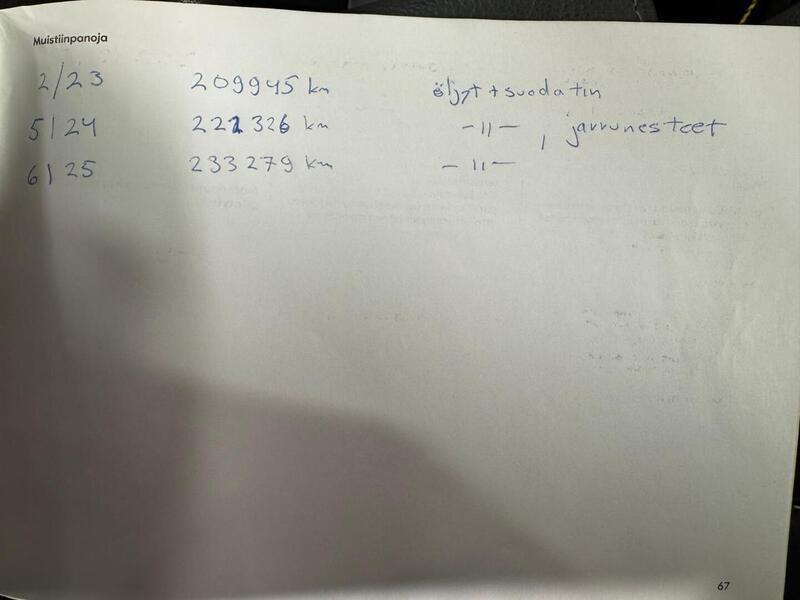 Muistiinpanoja
2/23 209945 km öljyt + suodatin
5/24 221326 km -||- , jarrunesteet
6/25 233279 km -||-
67